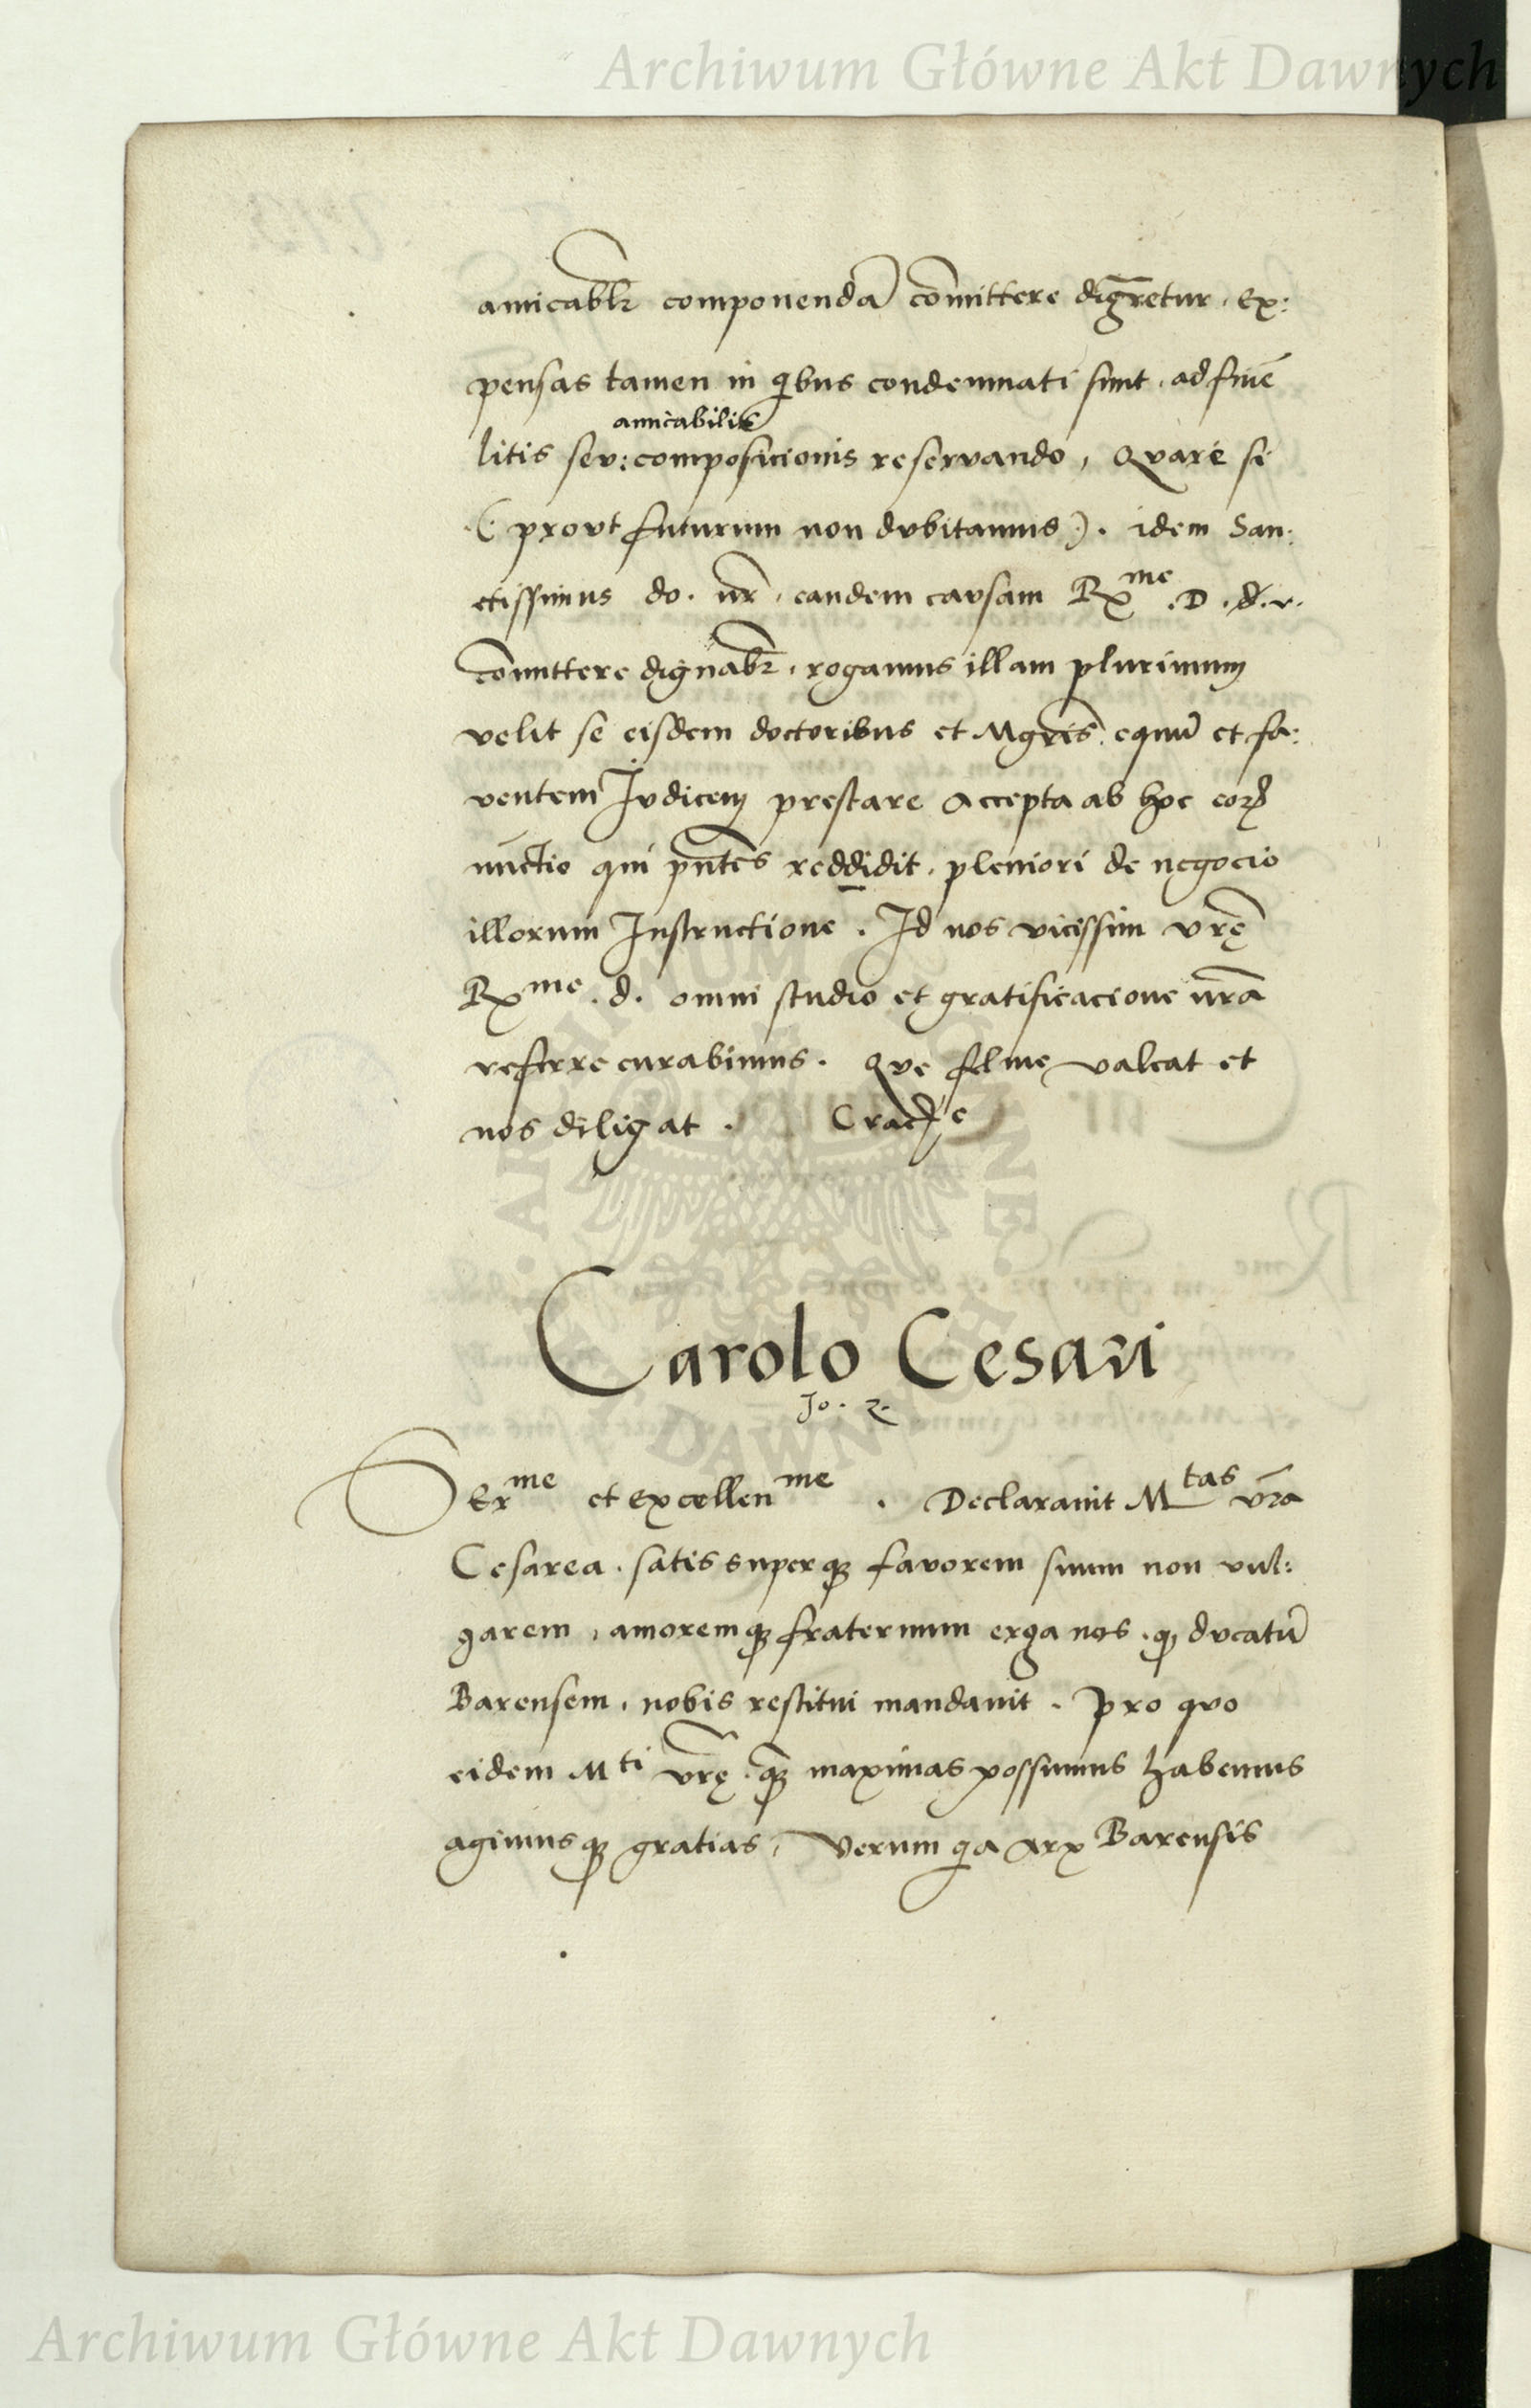 Archiwum Główne Akt Dawnych
amicabłr componendā com̄ittere dignretur . Ex:
pensas tamen in qibus condemnati sunt . ad finē
amicabilis
litis seu: composicionis reservando , Quare si
(: prout futurum non dubitamus :) . idem San:
ctissimus do . nr̄ . eandem causam Rx^me . D . d . v .
com̄ittere dignabr̄ . rogamus illam plurimum
velit se eisdem doctoribus et Mgris̄ . equū et fa:
ventem Judicem prestare Accepta ab hoc eorꝝ
nunctio qui pn̄tes reddidit . pleniori de negocio
illorum Instructione . Id nos vicissim vrę̄
Rx^me . d . omni studio et gratificacione nrā
referre curabimus . Que felme valeat et
nos diligat . Cracie
Carolo Cesari
Jo . 2 .
Ser^me et Excellen^me . Declarauit M^tas vr̄a
Cesarea . satis superqꝫ favorem suum non vul:
garem , amoremqꝫ fraternum erga nos . qꝫ ducatū
Barensem . nobis restitui mandauit . Pro quo
eidem M^ti vrę̄ . qꝫ̄ maximas possumus habemus
agimusqꝫ gratias , Verum qa Arx Barensis
ARCHIWUM GŁÓWNE AKT DAWNYCH
Archiwum Główne Akt Dawnych